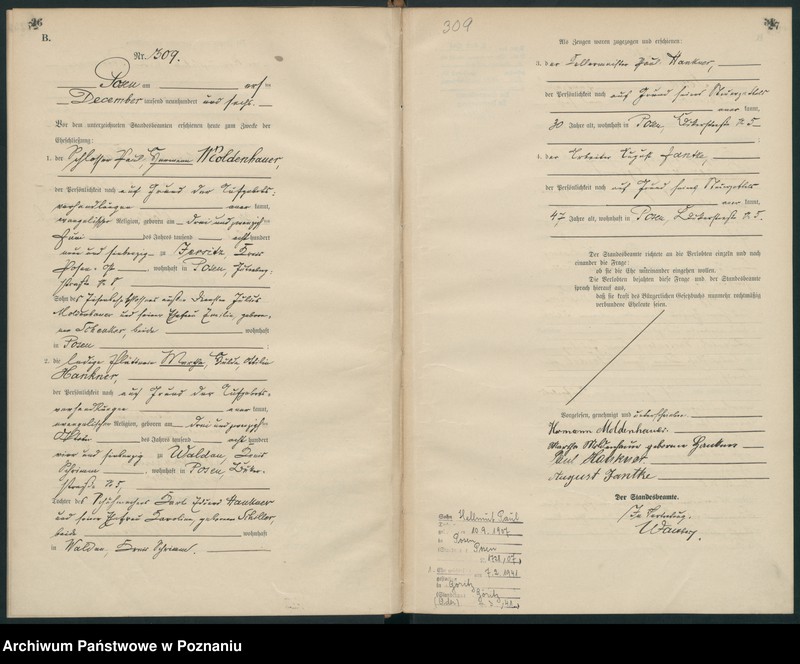 26
B.
Nr. 309.
Posen am
December tausend neunhundert und sechs.
Vor dem unterzeichneten Standesbeamten erschienen heute zum Zwecke der
Eheschließung:
1. der Schlosser Paul Hermann Moldenhauer,
der Persönlichkeit nach auf Grund der Aufgebots-
verhandlungen kannt,
evangelischer Religion, geboren am drei und zwanzigsten
Juni des Jahres tausend acht hundert
neun und siebenzig zu Kreis
Posen-Ost, wohnhaft in Posen,
straße Nr. 8
Sohn des Julius
Moldenhauer und seiner Ehefrau Emilie, gebore-
nen beide wohnhaft
in Posen
2. die ledige Plätterin Martha, Hulda, Ottilie
Hankner,
der Persönlichkeit nach auf Grund der Aufgebots-
verhandlungen kannt,
evangelischer Religion, geboren am drei und zwanzigsten
Oktober des Jahres tausend acht hundert
vier und siebenzig zu Waldau, Kreis
Schrimm, wohnhaft in Posen,
straße Nr. 5,
Tochter des Schuhmachers Hankner
und seiner Ehefrau Karoline, geborenen Scholler,
beide wohnhaft
in Waldau, Kreis Schrimm.
309
Als Zeugen waren zugezogen und erschienen:
3. der Paul Hankner,
der Persönlichkeit nach auf Grund seines Steuerzettels
kannt,
30 Jahre alt, wohnhaft in Posen, Nr. 5
4. der Arbeiter August Jantke,
der Persönlichkeit nach auf Grund seines Steuerzettels
kannt,
47 Jahre alt, wohnhaft in Posen, Nr. 5.
Der Standesbeamte richtete an die Verlobten einzeln und nach
einander die Frage:
ob sie die Ehe miteinander eingehen wollen.
Die Verlobten bejahten diese Frage und der Standesbeamte
sprach hierauf aus,
daß sie kraft des Bürgerlichen Gesetzbuchs nunmehr rechtmäßig
verbundene Eheleute seien.
Vorgelesen, genehmigt und unterschrieben
Hermann Moldenhauer.
Martha Moldenhauer geborene Hankner
Paul Hankner
August Jantke
Der Standesbeamte.
In Vertretung.
Sohn Hellmut Paul
10.9.1907
Posen
7.2.1941
Göritz
Göritz
(Oder)
Archiwum Państwowe w Poznaniu